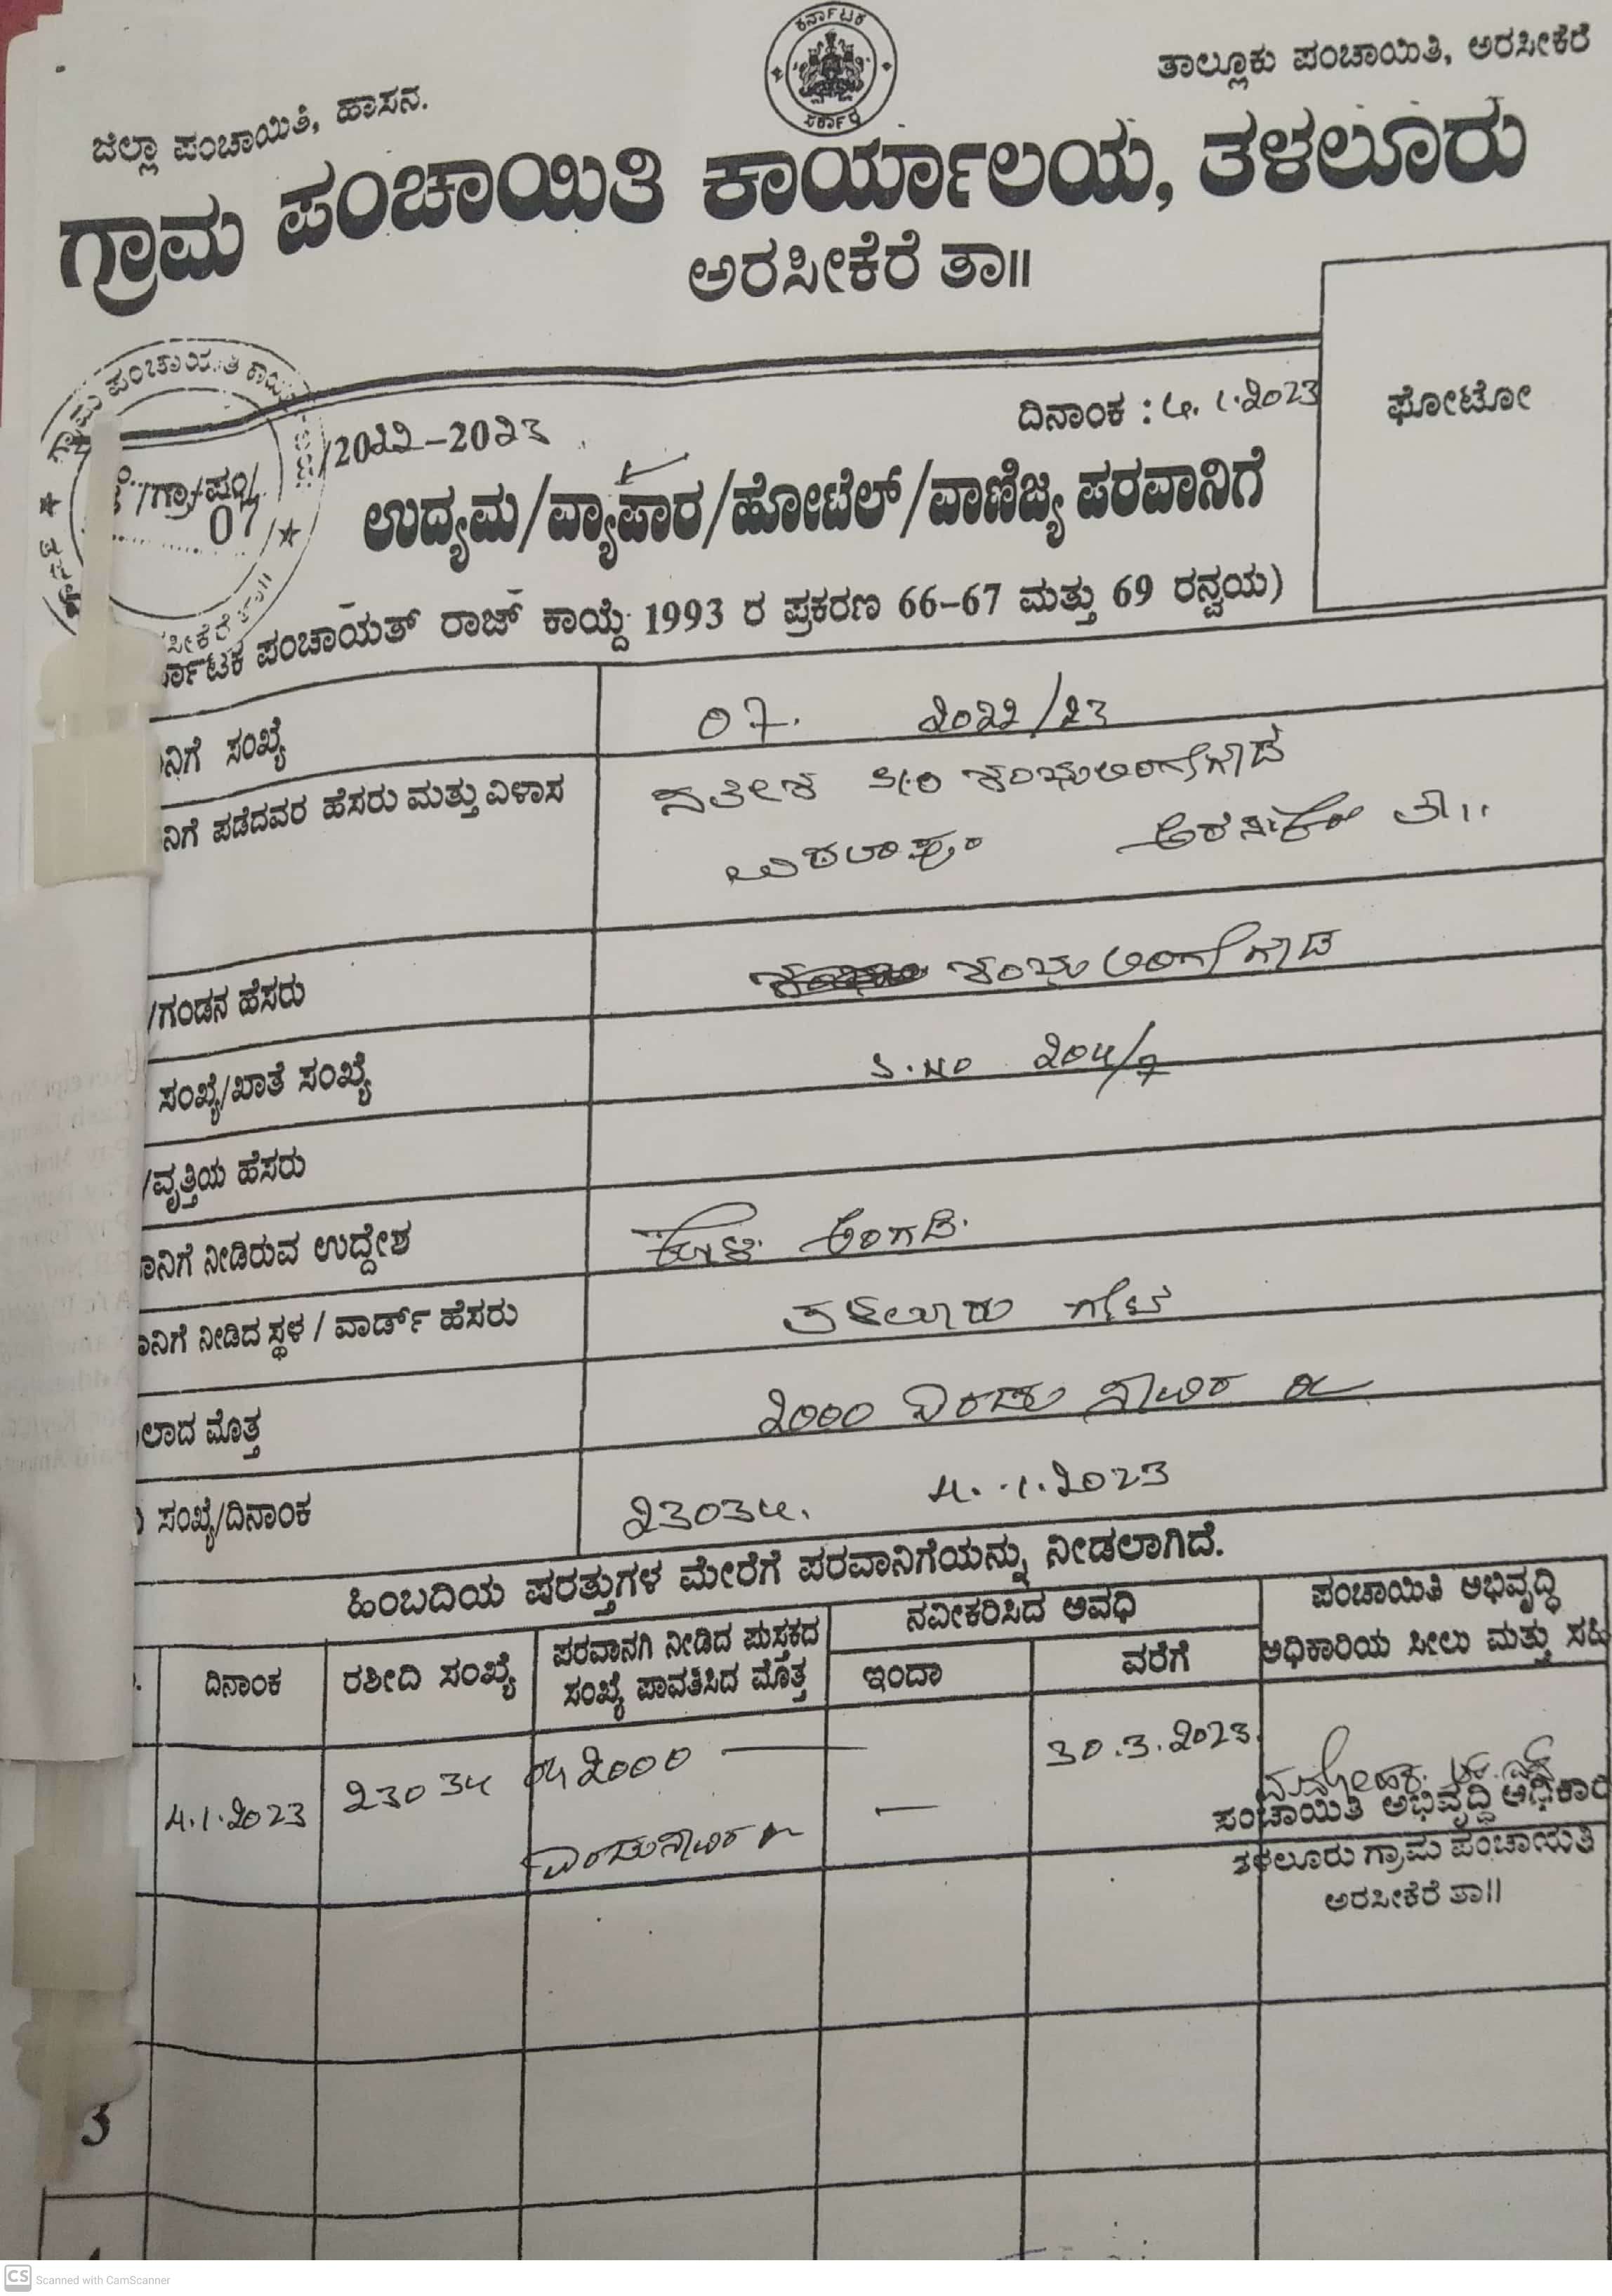 ಕರ್ನಾಟಕ
ಸರ್ಕಾರ
ಜಿಲ್ಲಾ ಪಂಚಾಯಿತಿ, ಹಾಸನ.
ತಾಲ್ಲೂಕು ಪಂಚಾಯಿತಿ, ಅರಸೀಕೆರೆ
ಗ್ರಾಮ ಪಂಚಾಯಿತಿ ಕಾರ್ಯಾಲಯ, ತಳಲೂರು
ಅರಸೀಕೆರೆ ತಾ॥
ಫೋಟೋ
/ಗ್ರಾ/ಪಂ/ 07 /2022-2023
ದಿನಾಂಕ : 4.1.2023
ಉದ್ಯಮ/ವ್ಯಾಪಾರ/ಹೋಟೆಲ್/ವಾಣಿಜ್ಯ ಪರವಾನಿಗೆ
ರ್ನಾಟಕ ಪಂಚಾಯತ್ ರಾಜ್ ಕಾಯ್ದೆ 1993 ರ ಪ್ರಕರಣ 66-67 ಮತ್ತು 69 ರನ್ವಯ)
ನಿಗೆ ಸಂಖ್ಯೆ 07. 2022/23
ನಿಗೆ ಪಡೆದವರ ಹೆಸರು ಮತ್ತು ವಿಳಾಸ S/O ಶಂಭುಲಿಂಗೇಗೌಡ
ಅರಸೀಕೆರೆ ತಾ||
/ಗಂಡನ ಹೆಸರು ಶಂಭುಲಿಂಗೇಗೌಡ
ಸಂಖ್ಯೆ/ಖಾತೆ ಸಂಖ್ಯೆ S.NO 204/7
/ವೃತ್ತಿಯ ಹೆಸರು
ಾನಿಗೆ ನೀಡಿರುವ ಉದ್ದೇಶ ಕೋಳಿ ಅಂಗಡಿ.
ಾನಿಗೆ ನೀಡಿದ ಸ್ಥಳ / ವಾರ್ಡ್ ಹೆಸರು ತಳಲೂರು ಗೇಟ್
ಲಾದ ಮೊತ್ತ 2000 ಎರಡು ಸಾವಿರ ರೂ
ಸಂಖ್ಯೆ/ದಿನಾಂಕ 23034. 4.1.2023
ಹಿಂಬದಿಯ ಷರತ್ತುಗಳ ಮೇರೆಗೆ ಪರವಾನಿಗೆಯನ್ನು ನೀಡಲಾಗಿದೆ.
ದಿನಾಂಕ
ರಶೀದಿ ಸಂಖ್ಯೆ
ಪರವಾನಗಿ ನೀಡಿದ ಪುಸ್ತಕದ
ಸಂಖ್ಯೆ ಪಾವತಿಸಿದ ಮೊತ್ತ
ನವೀಕರಿಸಿದ ಅವಧಿ
ಇಂದಾ
ವರೆಗೆ
ಪಂಚಾಯಿತಿ ಅಭಿವೃದ್ಧಿ
ಅಧಿಕಾರಿಯ ಸೀಲು ಮತ್ತು ಸಹಿ
4.1.2023 23034 ರೂ 2000 — 30.3.2023.
ಎರಡುಸಾವಿರ ರೂ
ಪಂಚಾಯಿತಿ ಅಭಿವೃದ್ಧಿ ಅಧಿಕಾರಿ
ತಳಲೂರು ಗ್ರಾಮ ಪಂಚಾಯಿತಿ
ಅರಸೀಕೆರೆ ತಾ॥
3
CS Scanned with CamScanner